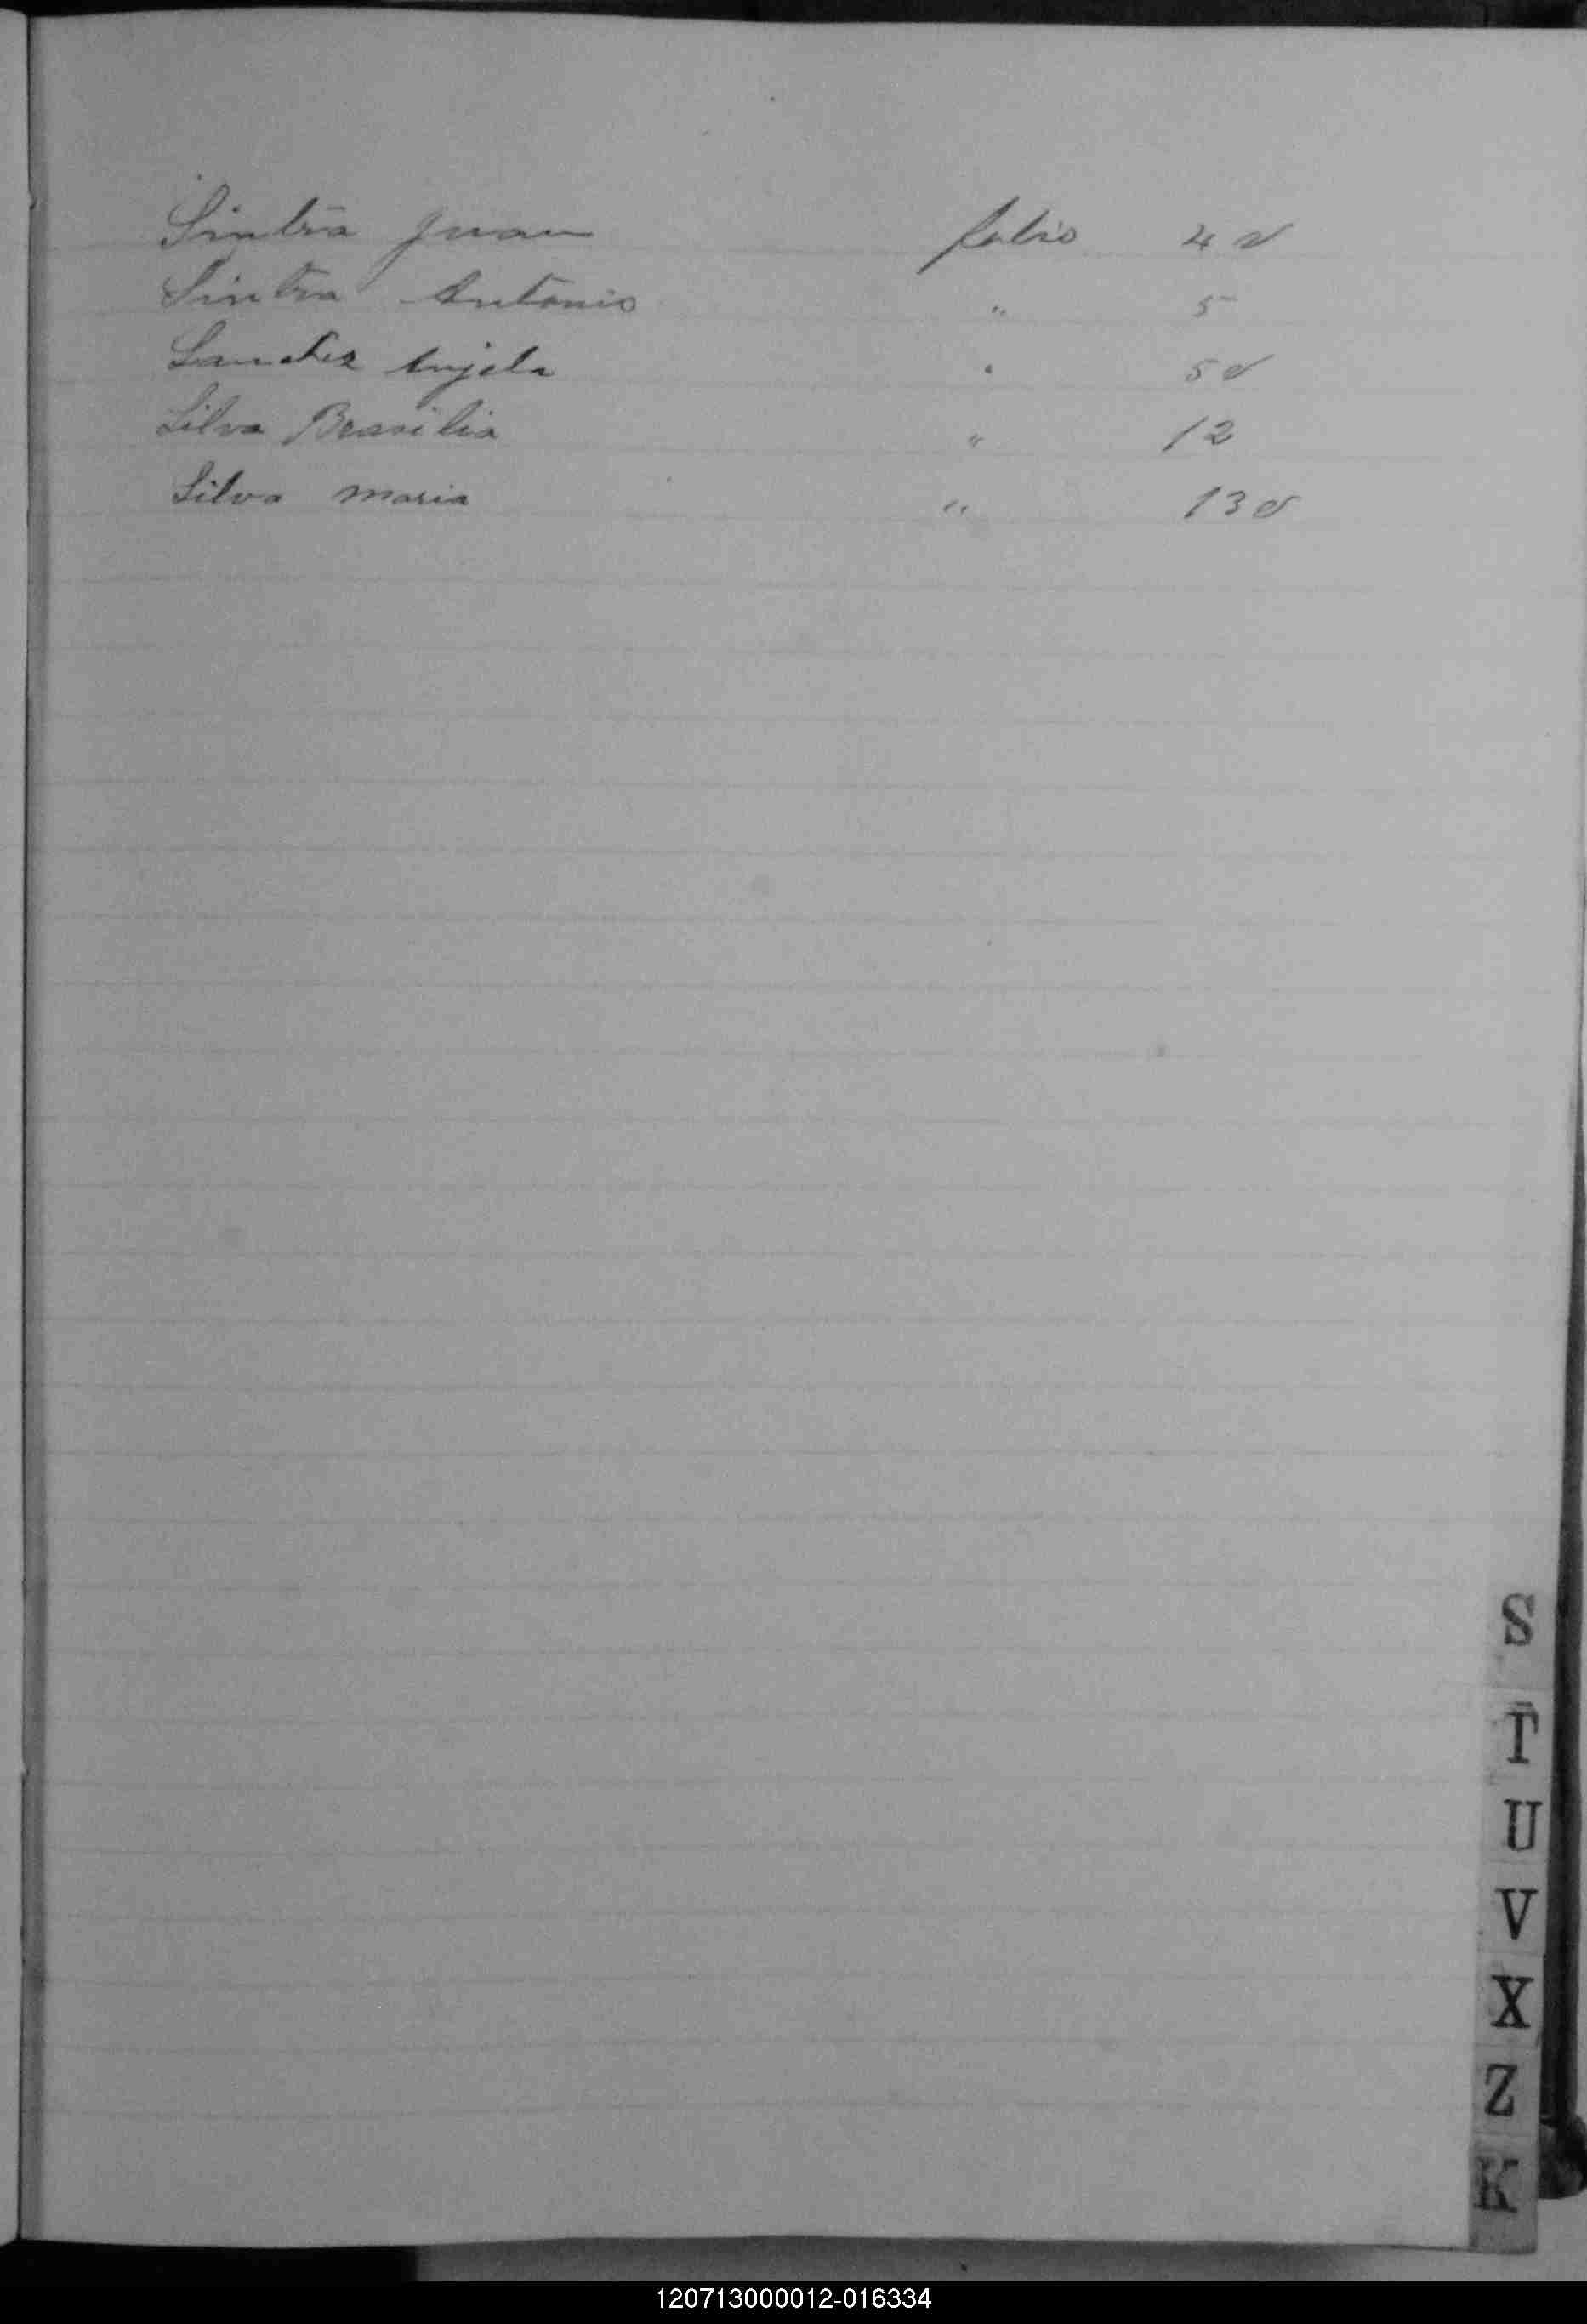 Sintra Juan folio 4 v
Sintra Antonio " 5
Sanchez Anjela " 5 v
Silva Brasilia " 12
Silva Maria " 13 v
S
T
U
V
X
Z
K
120713000012-016334